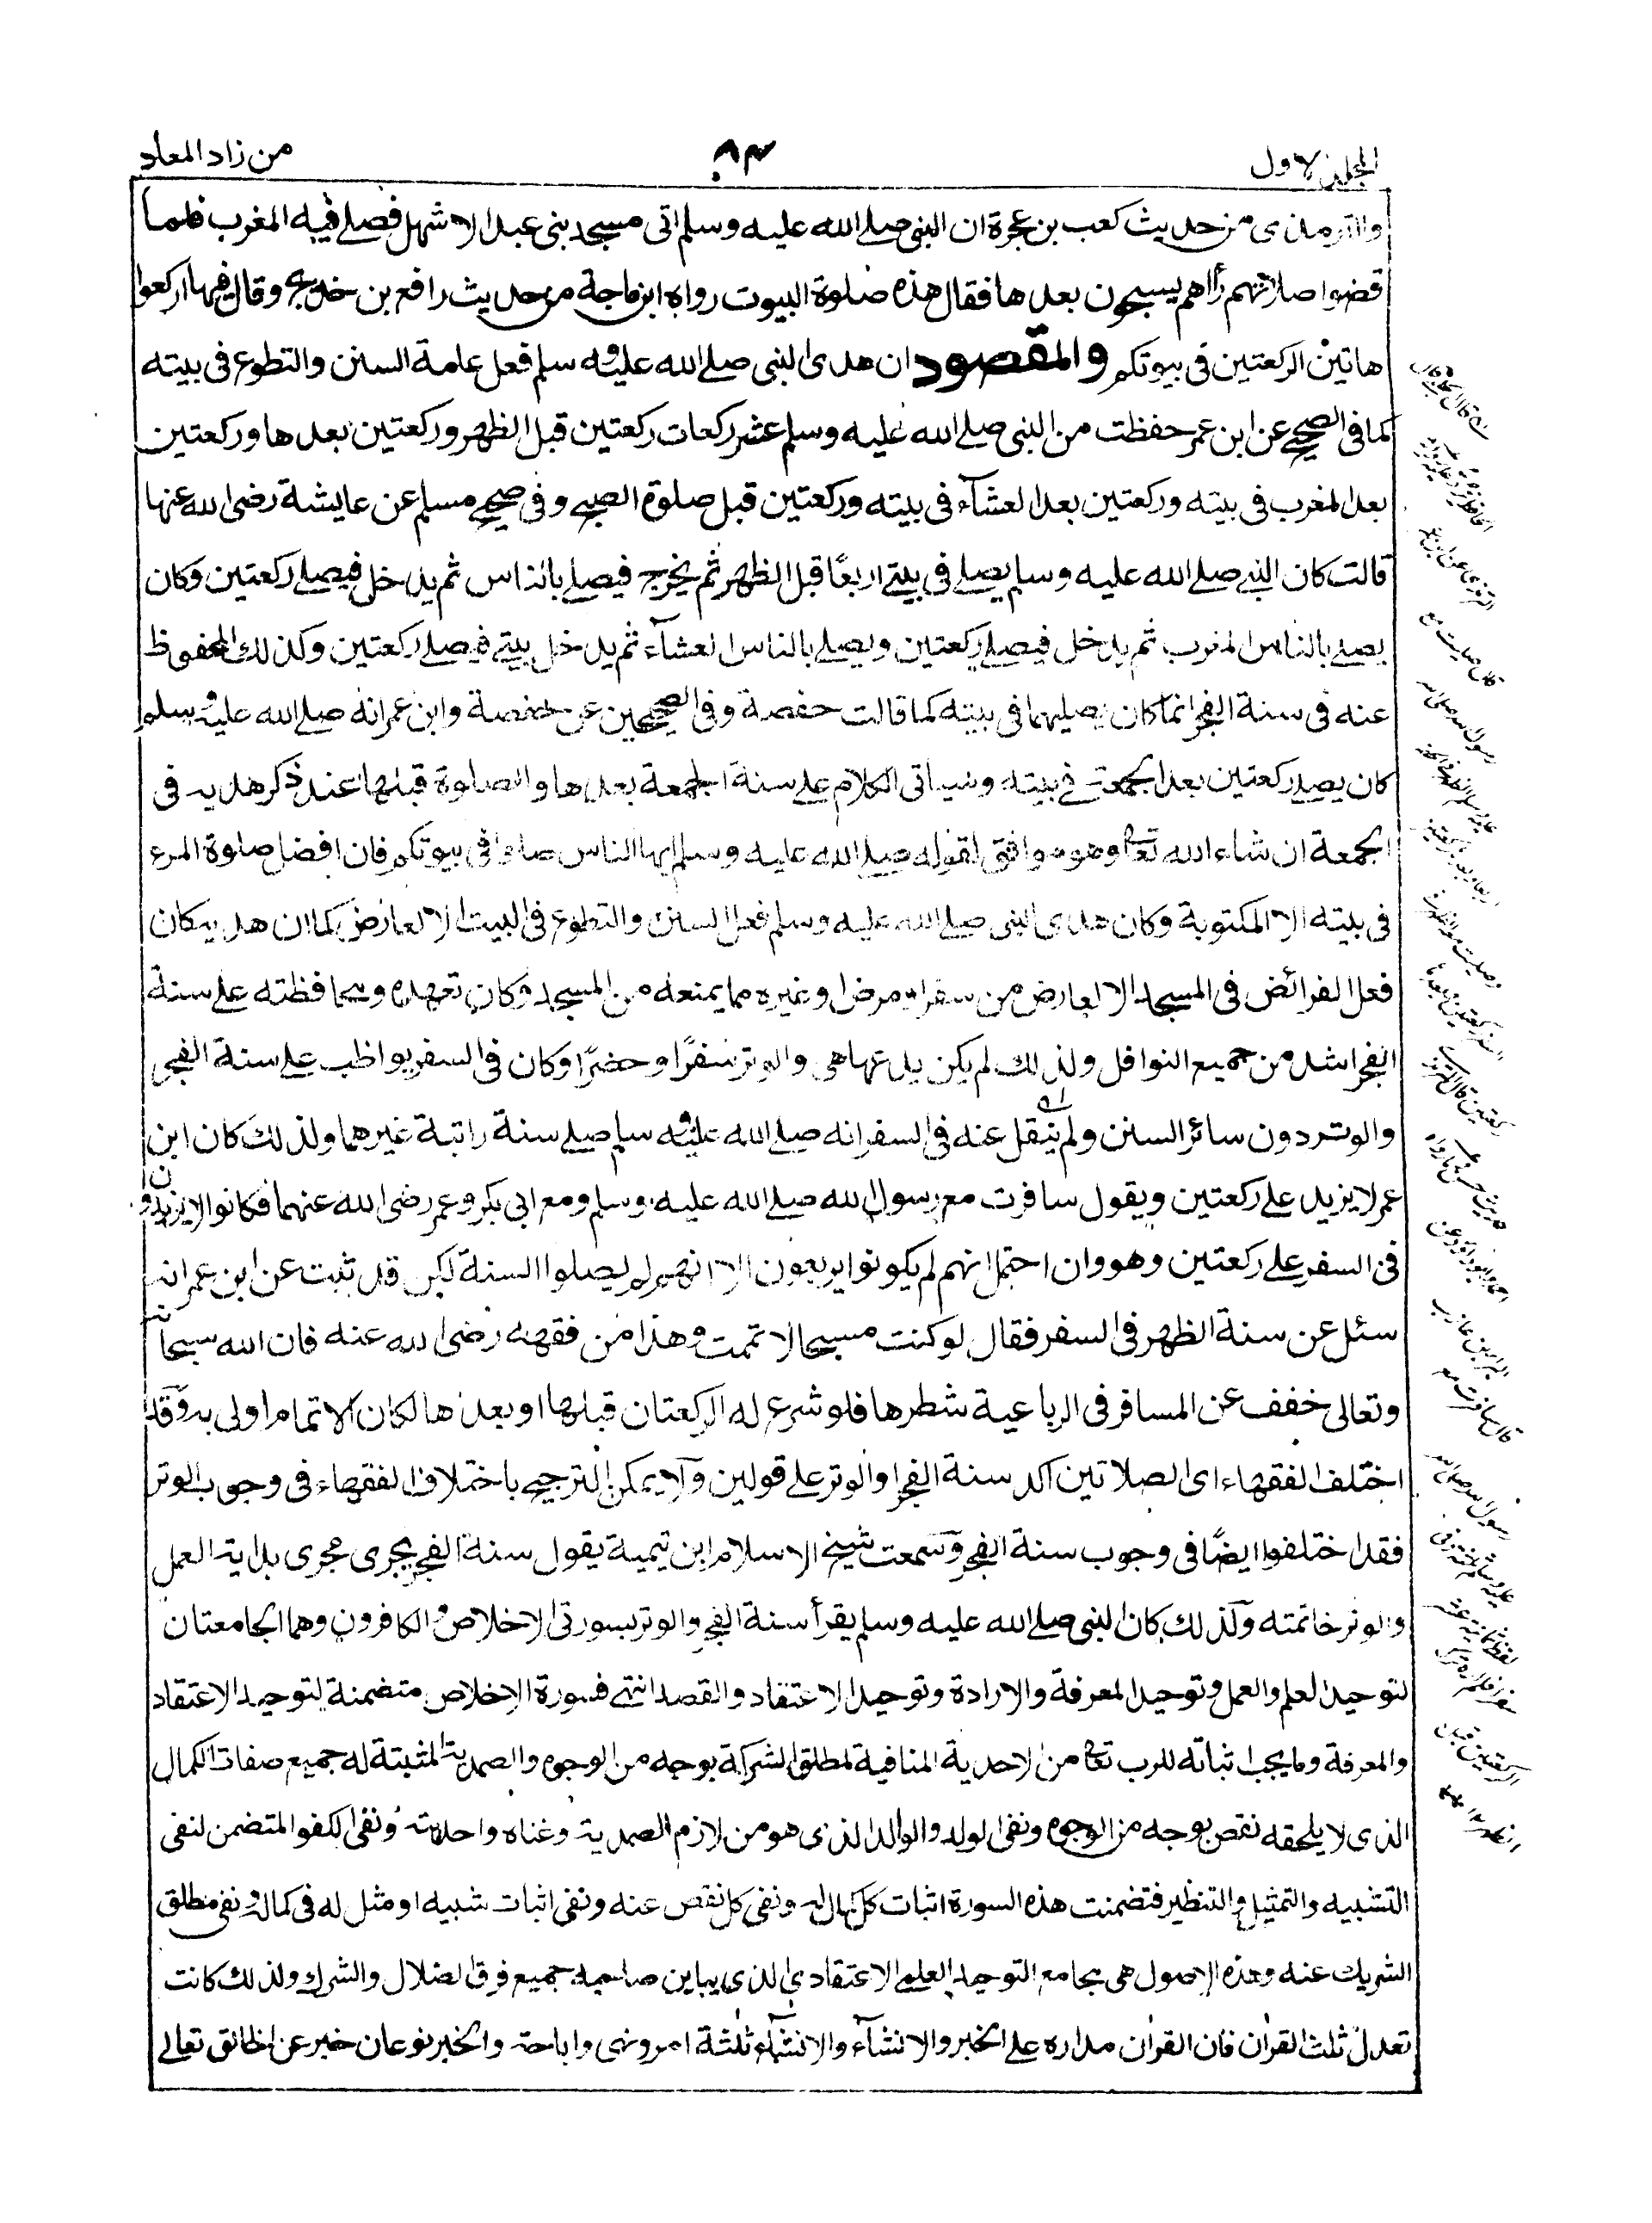 المجلد الاول
٨٣
من زاد المعاد
والترمذى من حديث كعب بن عجرة ان النبى صلے الله عليه وسلم اتى مسجد بنى عبد الاشهل فصلے فيه المغرب فلما
قضوا صلاتهم رأاهم يسبحون بعدها فقال هذه صلوة البيوت رواه ابن ماجة من حديث رافع بن خديج وقال فيها اركعوا
هاتين الركعتين فى بيوتكم والمقصود ان هدى النبى صلے الله عليه وسلم فعل عامة السنن والتطوع فى بيته
كما فى الصحيح عن ابن عمر حفظت من النبى صلے الله عليه وسلم عشر ركعات ركعتين قبل الظهر وركعتين بعدها وركعتين
بعد المغرب فى بيته وركعتين بعد العشآء فى بيته وركعتين قبل صلوة الصبح وفى صحيح مسلم عن عايشة رضى الله عنها
قالت كان النبى صلے الله عليه وسلم يصلے فى بيتے اربعًا قبل الظهر ثم يخرج فيصلے بالناس ثم يدخل فيصلے ركعتين وكان
يصلے بالناس المغرب ثم يدخل فيصلے ركعتين ويصلے بالناس العشآء ثم يدخل بيتے فيصلے ركعتين وكذلك المحفوظ
عنه فى سنة الفجر انما كان يصليهما فى بيته كما قالت حفصة وفى الصحيحين عن حفصة وابن عمر انه صلے الله عليه وسلم
كان يصلے ركعتين بعد الجمعة فے بيته وسياتى الكلام علے سنة الجمعة بعدها والصلوة قبلها عند ذكر هديه فى
الجمعة ان شاء الله تعالى وهو موافق لقوله صلے الله عليه وسلم ايها الناس صلوا فى بيوتكم فان افضل صلوة المرء
فى بيته الا المكتوبة وكان هدى النبى صلے الله عليه وسلم فعل السنن والتطوع فى البيت الا لعارض كما ان هديه كان
فعل الفرائض فى المسجد الا لعارض من سفر او مرض او غيره مما يمنعه من المسجد وكان تعهده ومحافظته علے سنة
الفجر اشد من جميع النوافل ولذلك لم يكن يدعها هى والوتر سفرًا وحضرًا وكان فى السفر يواظب علے سنة الفجر
والوتر دون سائر السنن ولم ينقل عنه فى السفر انه صلے الله عليه وسلم صلے سنة راتبة غيرهما ولذلك كان ابن
عمر لا يزيد على ركعتين ويقول سافرت مع رسول الله صلے الله عليه وسلم ومع ابى بكر وعمر رضى الله عنهما فكانوا لا يزيدون
فى السفر على ركعتين وهو وان احتمل انهم لم يكونوا يربعون الا انهم لم يصلوا السنة لكن قد ثبت عن ابن عمر انه
سئل عن سنة الظهر فى السفر فقال لو كنت مسبحا لاتممت وهذا من فقهه رضى الله عنه فان الله سبحانه
وتعالى خفف عن المسافر فى الرباعية شطرها فلو شرع له الركعتان قبلها او بعدها لكان الاتمام اولى به وقد
اختلف الفقهاء اى الصلاتين اكد سنة الفجر او الوتر على قولين ولا يمكن الترجيح باختلاف الفقهاء فى وجوب الوتر
فقد اختلفوا ايضًا فى وجوب سنة الفجر وسمعت شيخ الاسلام ابن تيمية يقول سنة الفجر يجرى مجرى بداية العمل
والوتر خاتمته ولذلك كان النبى صلے الله عليه وسلم يقرأ سنة الفجر والوتر بسورتى الاخلاص والكافرون وهما الجامعتان
لتوحيد العلم والعمل وتوحيد المعرفة والارادة وتوحيد الاعتقاد والقصد انتهے فسورة الاخلاص متضمنة لتوحيد الاعتقاد
والمعرفة وما يجب اثباته للرب تعالى من الاحدية المنافية لمطلق الشركة بوجه من الوجوه والصمدية المثبتة له جميع صفات الكمال
الذى لا يلحقه نقص بوجه من الوجوه ونفى الولد والوالد الذى هو من لازم الصمدية وغناه واحديته ونفى الكفو المتضمن لنفى
التشبيه والتمثيل والتنظير فتضمنت هذه السورة اثبات كل كمال له ونفى كل نقص عنه ونفى اثبات شبيه او مثل له فى كماله ونفى مطلق
الشريك عنه وهذه الاصول هى مجامع التوحيد العلمى الاعتقادى الذى يباين صاحبه جميع فرق الضلال والشرك ولذلك كانت
تعدل ثلث القران فان القران مداره على الخبر والانشآء والانشآء ثلثة امر ونهى واباحة والخبر نوعان خبر عن الخالق تعالے